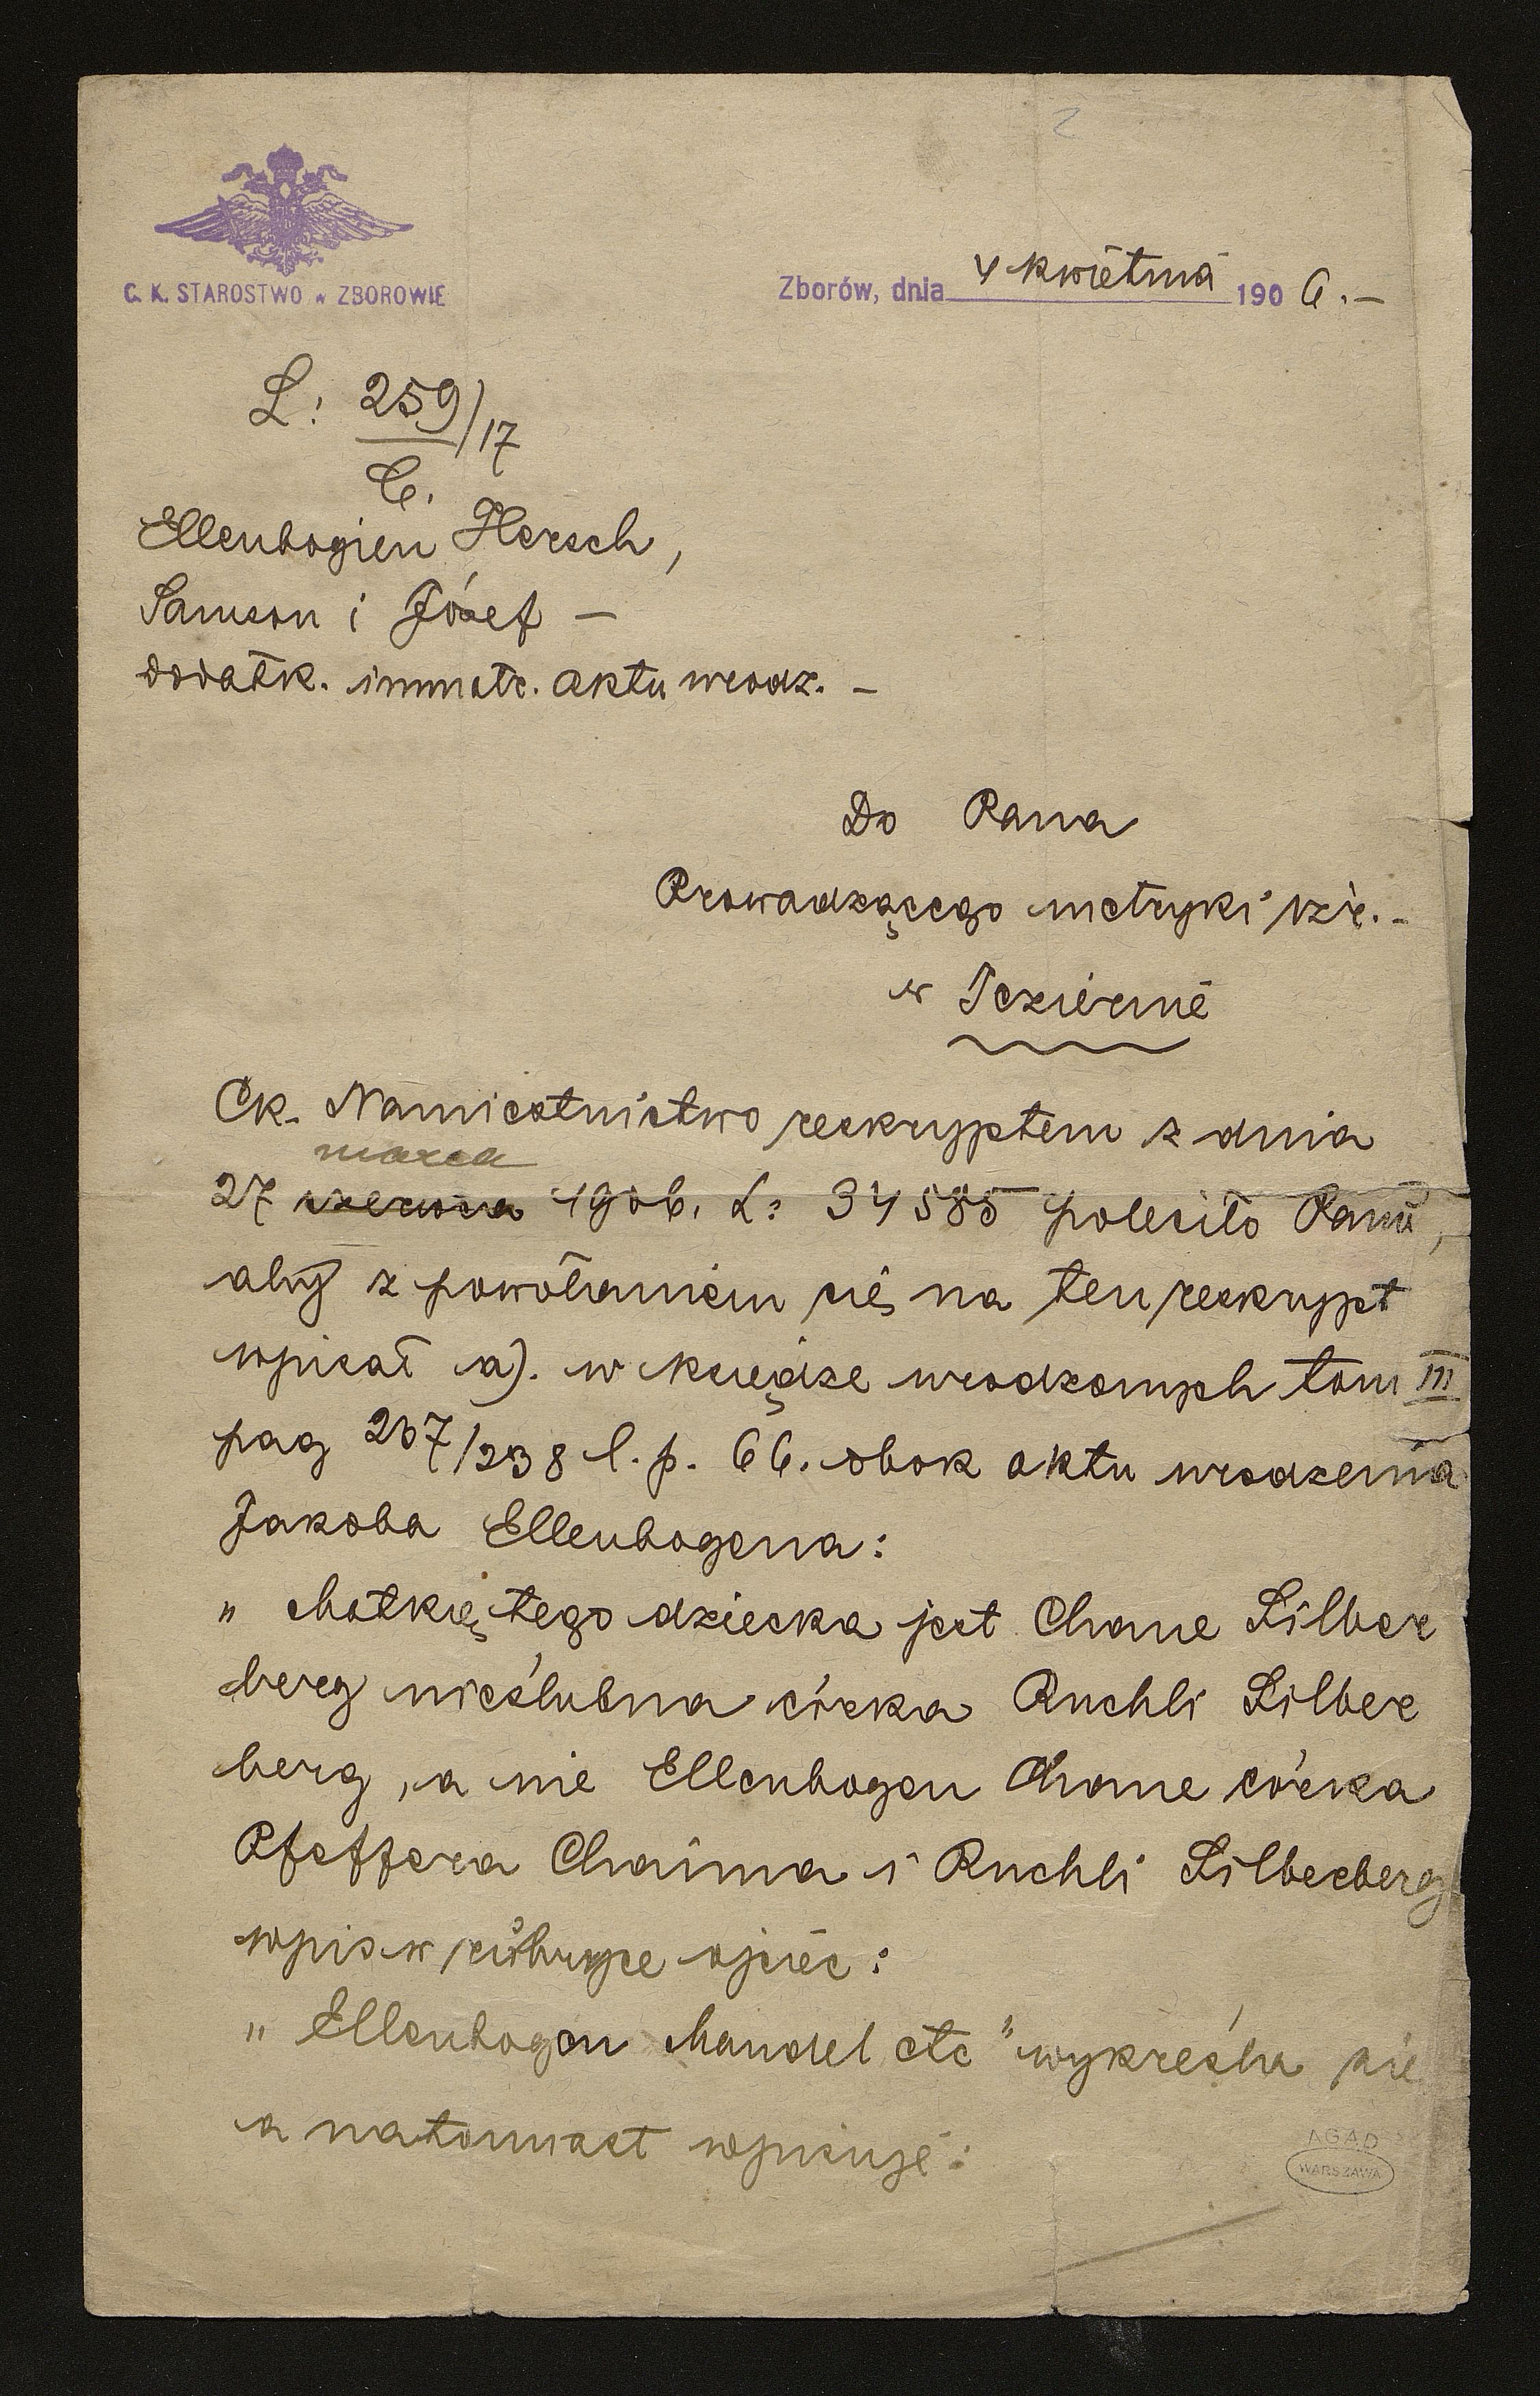 2
C. K. STAROSTWO w ZBOROWIE
Zborów, dnia 4 kwietnia 190 6.—
L: 259/17
C.
Ellenbogien Hersch,
Samson i Józef —
dodatk. immatr. aktu urodz. —
Do Pana
Prowadzącego metryki izr. –
w Jeziernie
Ck. Namiestnictwo reskryptem z dnia
marca
27 czerwca 1906. L: 34585 poleciło Panu,
aby z powołaniem się na ten reskrypt
wpisał a). w księdze urodzonych tom III
pag 237/238 l. p. 66. obok aktu urodzenia
Jakoba Ellenbogena:
„ Matką tego dziecka jest Chane Silber
berg nieślubna córka Ruchli Silber
berg, a nie Ellenbogen Chane córka
Pfeffera Chaima i Ruchli Silberberg
wpis w rubryce ojciec:
„ Ellenbogen Mandel etc" wykreśla się
a natomiast wpisuje:
AGAD
WARSZAWA